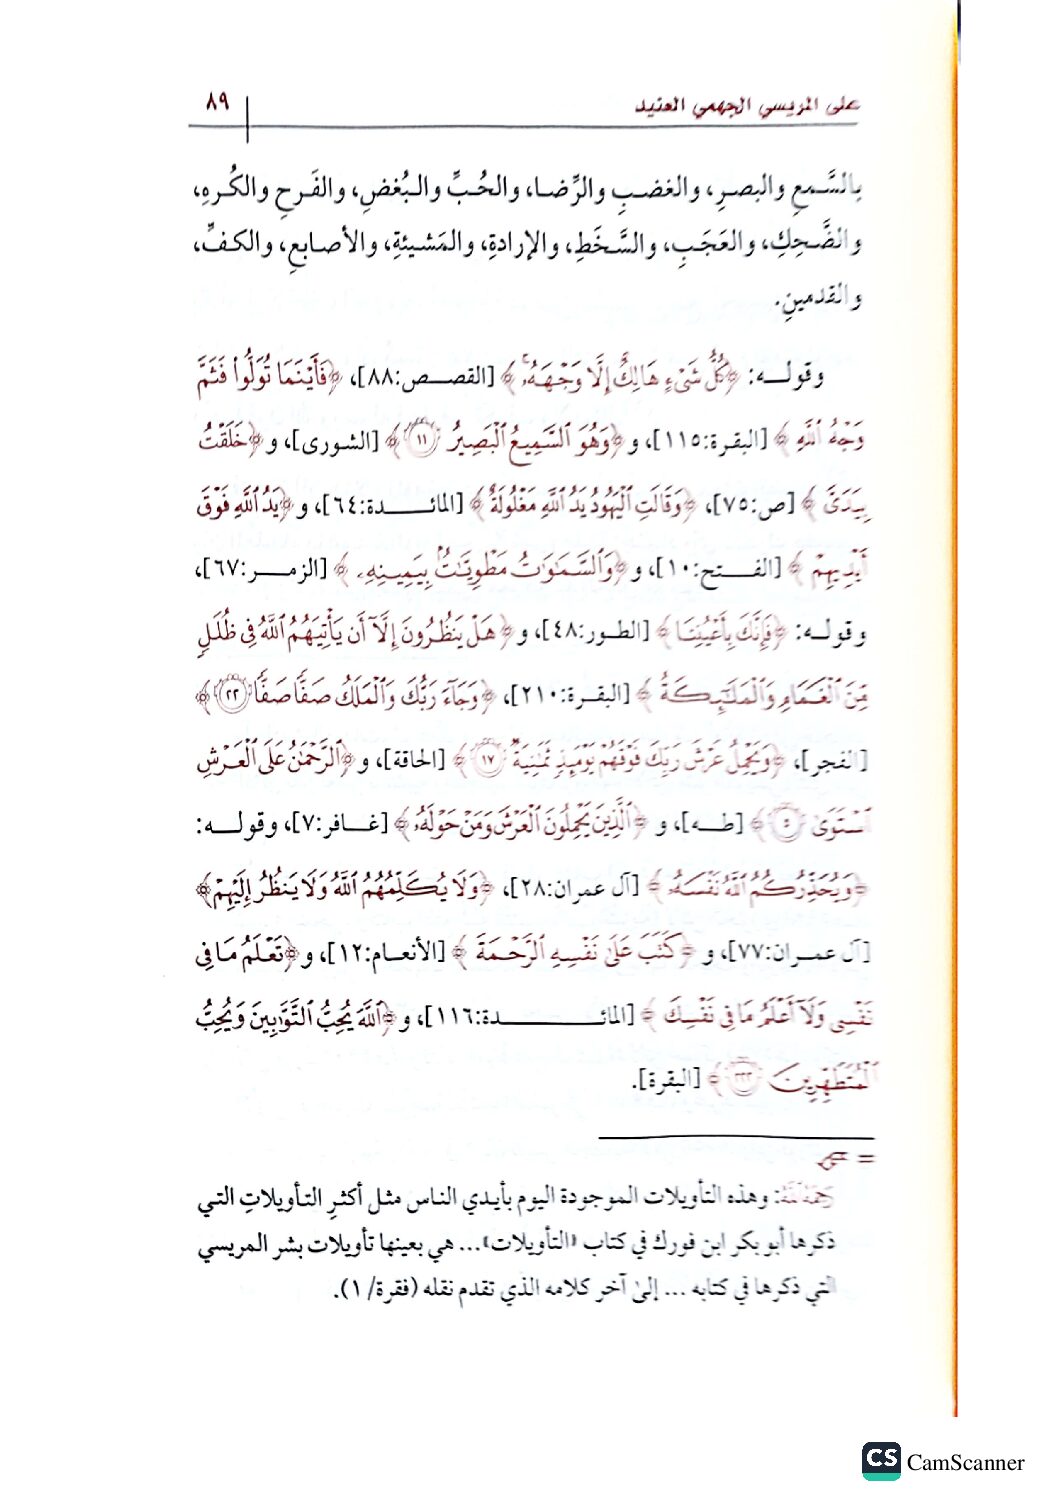 على المريسي الجهمي العنيد ٨٩
بالسَّمعِ والبصرِ، والغضبِ والرِّضا، والحُبِّ والبُغضِ، والفَرحِ والكُرهِ،
والضَّحِكِ، والعَجَبِ، والسَّخَطِ، والإرادةِ، والمَشيئةِ، والأصابعِ، والكفِّ،
والقدمينِ.
وقوله: ﴿كُلُّ شَىْءٍ هَالِكٌ إِلَّا وَجْهَهُۥ﴾ [القصص:٨٨]، ﴿فَأَيْنَمَا تُوَلُّوا۟ فَثَمَّ
وَجْهُ ٱللَّهِ﴾ [البقرة:١١٥]، و﴿وَهُوَ ٱلسَّمِيعُ ٱلْبَصِيرُ ١١﴾ [الشورى]، و﴿خَلَقْتُ
بِيَدَىَّ﴾ [ص:٧٥]، ﴿وَقَالَتِ ٱلْيَهُودُ يَدُ ٱللَّهِ مَغْلُولَةٌ﴾ [المائدة:٦٤]، و﴿يَدُ ٱللَّهِ فَوْقَ
أَيْدِيهِمْ﴾ [الفتح:١٠]، و﴿وَٱلسَّمَٰوَٰتُ مَطْوِيَّٰتٌۢ بِيَمِينِهِۦ﴾ [الزمر:٦٧]،
وقوله: ﴿فَإِنَّكَ بِأَعْيُنِنَا﴾ [الطور:٤٨]، و﴿هَلْ يَنظُرُونَ إِلَّآ أَن يَأْتِيَهُمُ ٱللَّهُ فِى ظُلَلٍ
مِّنَ ٱلْغَمَامِ وَٱلْمَلَٰٓئِكَةُ﴾ [البقرة:٢١٠]، ﴿وَجَآءَ رَبُّكَ وَٱلْمَلَكُ صَفًّا صَفًّا ٢٢﴾
[الفجر]، ﴿وَيَحْمِلُ عَرْشَ رَبِّكَ فَوْقَهُمْ يَوْمَئِذٍ ثَمَٰنِيَةٌ ١٧﴾ [الحاقة]، و﴿ٱلرَّحْمَٰنُ عَلَى ٱلْعَرْشِ
ٱسْتَوَىٰ ٥﴾ [طه]، و﴿ٱلَّذِينَ يَحْمِلُونَ ٱلْعَرْشَ وَمَنْ حَوْلَهُۥ﴾ [غافر:٧]، وقوله:
﴿وَيُحَذِّرُكُمُ ٱللَّهُ نَفْسَهُۥ﴾ [آل عمران:٢٨]، ﴿وَلَا يُكَلِّمُهُمُ ٱللَّهُ وَلَا يَنظُرُ إِلَيْهِمْ﴾
[آل عمران:٧٧]، و﴿كَتَبَ عَلَىٰ نَفْسِهِ ٱلرَّحْمَةَ﴾ [الأنعام:١٢]، و﴿تَعْلَمُ مَا فِى
نَفْسِى وَلَآ أَعْلَمُ مَا فِى نَفْسِكَ﴾ [المائدة:١١٦]، و﴿ٱللَّهَ يُحِبُّ ٱلتَّوَّٰبِينَ وَيُحِبُّ
ٱلْمُتَطَهِّرِينَ ٢٢٢﴾ [البقرة].
=
رَحِمَهُ ٱللَّهُ: وهذه التأويلات الموجودة اليوم بأيدي الناس مثل أكثرِ التأويلاتِ التي
ذكرها أبو بكر ابن فورك في كتاب «التأويلات»... هي بعينها تأويلات بشر المريسي
التي ذكرها في كتابه ... إلىٰ آخر كلامه الذي تقدم نقله (فقرة/ ١).
CS CamScanner